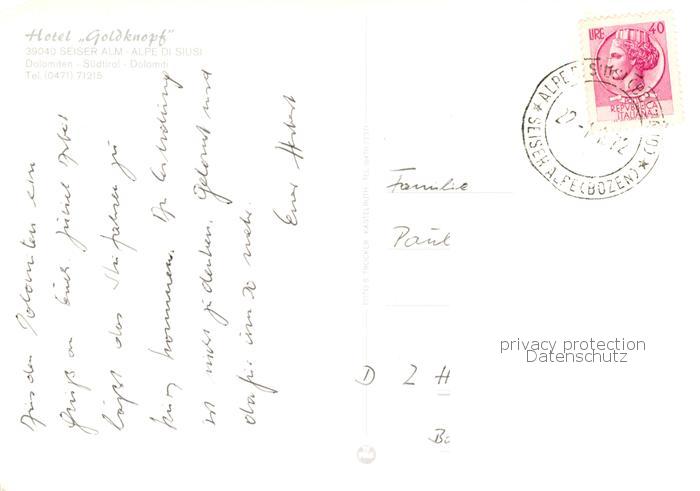 Hotel „Goldknopf"
39040 SEISER ALM - ALPE DI SIUSI
Dolomiten - Südtirol - Dolomiti
Tel. (0471) 71215
Aus den Dolomiten ein
Gruß an Euch. Zuviel Nebel
läßt das Skifahren zu
kurz kommen. An Erholung
ist nicht zu denken. Gelernt wird
dafür um so mehr.
Euer Hubert
LIRE 40
REPVBBLICA
ITALIANA
ALPE DI SIUSI
SEISER ALPE (BOZEN)
Familie
Paul
D Z H
Bo
privacy protection
Datenschutz